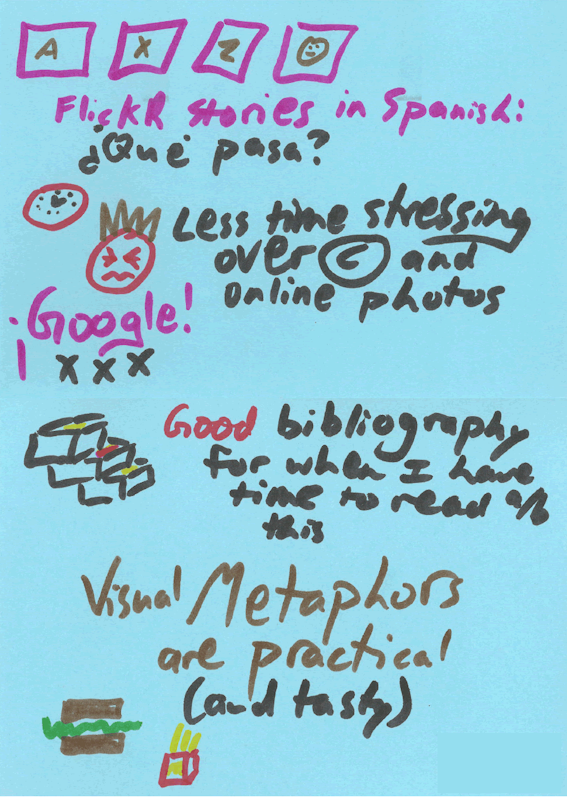 A X Z
FlickR stories in Spanish:
¿Qué pasa?
Less time stressing
over © and
online photos
¡Google!
x x x
Good bibliography
for when I have
time to read a/b
this
Visual Metaphors
are practical
(and tasty)